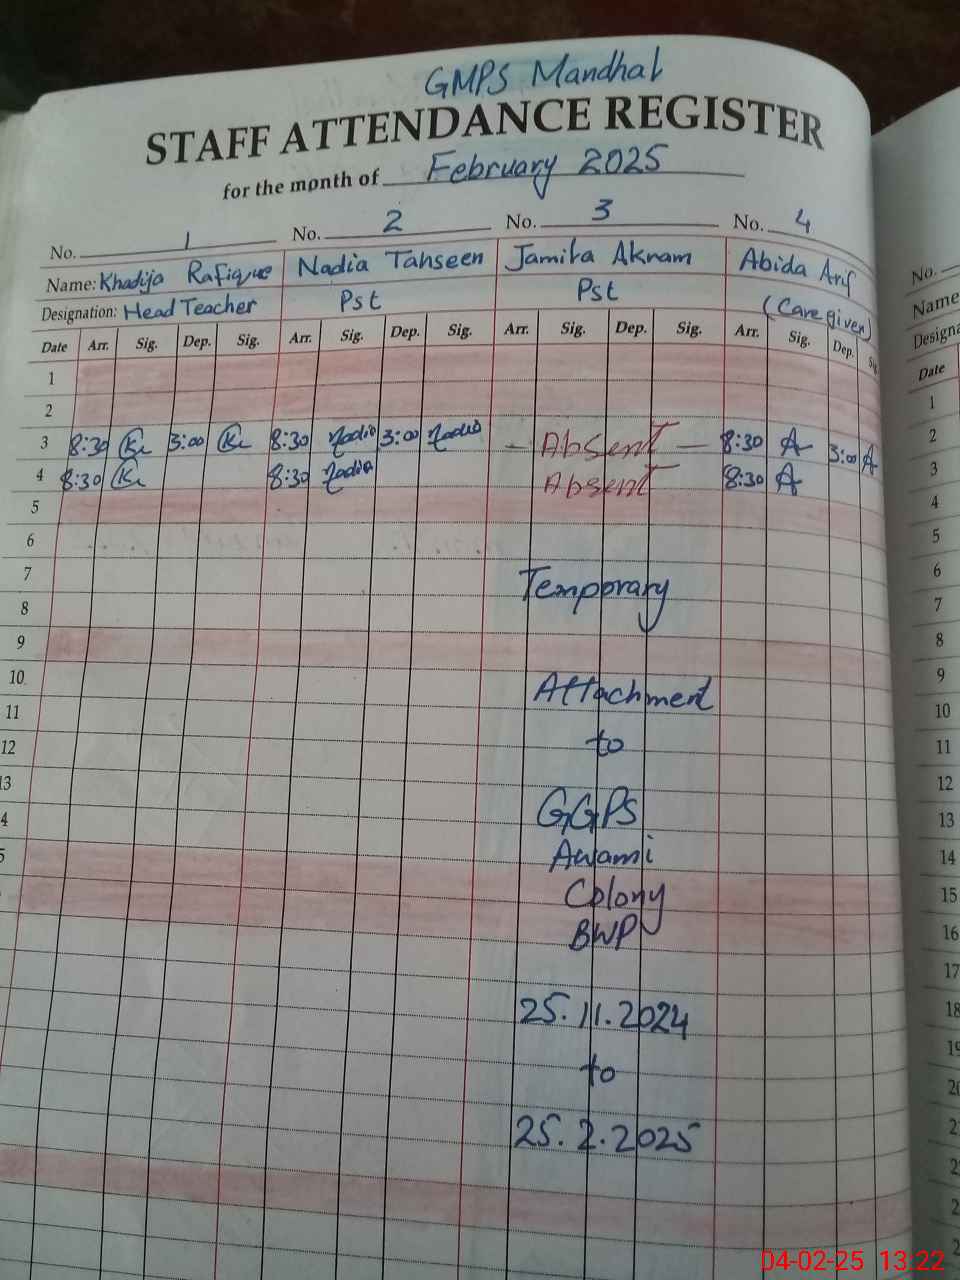 GMPS Mandhal
STAFF ATTENDANCE REGISTER
for the month of February 2025
No. 1 No. 2 No. 3 No. 4
Name: Khadija Rafique Nadia Tahseen Jamila Akram Abida Arif
Designation: Head Teacher Pst Pst (Care given)
Date Arr. Sig. Dep. Sig. Arr. Sig. Dep. Sig. Arr. Sig. Dep. Sig. Arr. Sig. Dep. Sig.
1
2
3 8:30 3:00 8:30 Nadia 3:00 Nadia - Absent - 8:30 A 3:00 A
4 8:30 8:30 Nadia Absent 8:30 A
5
6
7 Temporary
8
9
10 Attachment
11
12 to
13
4 GGPS
5 Awami
Colony
BWP
25.11.2024
to
25.2.2025
No.
Name
Designa
Date
1
2
3
4
5
6
7
8
9
10
11
12
13
14
15
16
17
18
19
20
04-02-25 13:22